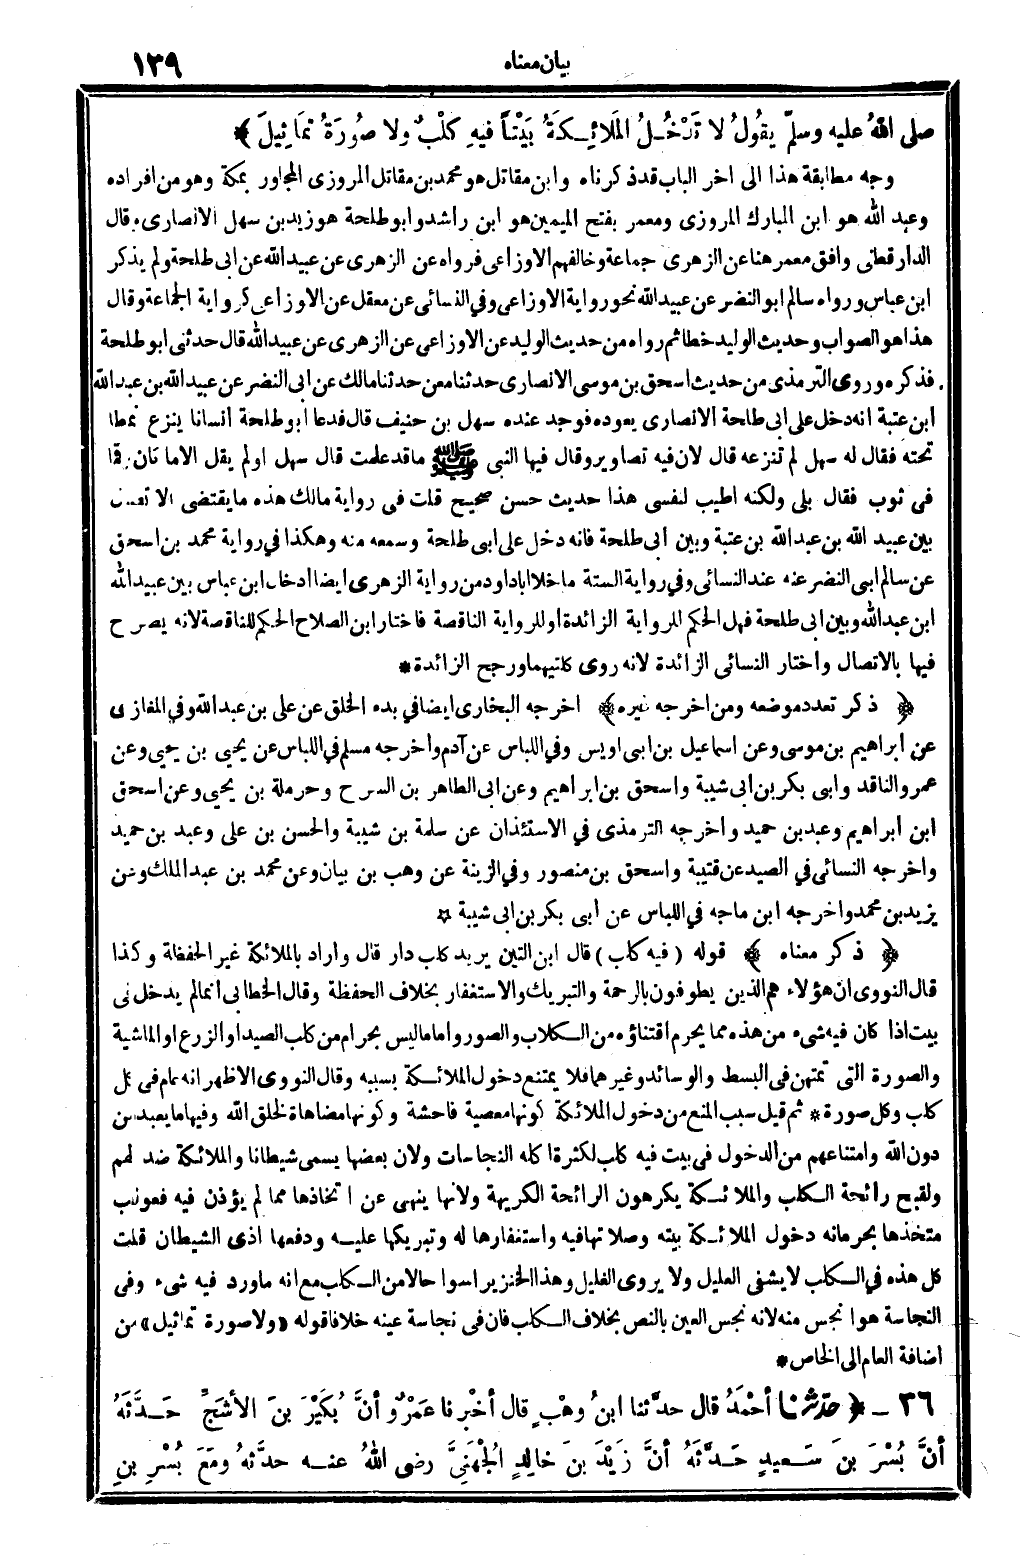 بيان معناه ١٣٩
صلى اللهُ عليه وسلّم يقُولُ لا تَدْخُلُ المَلاَئِكَةُ بَيْتاً فيهِ كَلْبٌ ولا صُورَةُ تمَاثِيلَ ﴾
وجه مطابقة هذا الى اخر الباب قد ذكرناه وابن مقاتل هو محمد بن مقاتل المروزى المجاور بمكة وهو من افراده
وعبد الله هو ابن المبارك المروزى ومعمر بفتح الميمين هو ابن راشد وابو طلحة هو زيد بن سهل الانصارى ه قال
الدار قطنى وافق معمر هنا عن الزهرى جماعة وخالفهم الاوزاعى فرواه عن الزهرى عن عبيد الله عن ابى طلحة ولم يذكر
ابن عباس ورواه سالم ابو النضر عن عبيد الله نحو رواية الاوزاعى وفي النسائى عن معقل عن الاوزاعى كرواية الجماعة وقال
هذا هو الصواب وحديث الوليد خطا ثم رواه من حديث الوليد عن الاوزاعى عن الزهرى عن عبيد الله قال حدثنى ابو طلحة
فذكره وروى الترمذى من حديث اسحق بن موسى الانصارى حدثنا معن حدثنا مالك عن ابى النضر عن عبيد الله بن عبد الله
ابن عتبة انه دخل على ابى طلحة الانصارى يعوده فوجد عنده سهل بن حنيف قال فدعا ابو طلحة انسانا ينزع نمطا
تحته فقال له سهل لم تنزعه قال لان فيه تصاوير وقال فيها النبى ﷺ ما قد علمت قال سهل اولم يقل الا ما كان رقما
فى ثوب فقال بلى ولكنه اطيب لنفسى هذا حديث حسن صحيح قلت فى رواية مالك هذه ما يقتضى الاتصال
بين عبيد الله بن عبد الله بن عتبة وبين ابى طلحة فانه دخل على ابى طلحة وسمعه منه وهكذا في رواية محمد بن اسحق
عن سالم ابى النضر عنه عند النسائى وفي رواية الستة ما خلا ابا داود من رواية الزهرى ايضا ادخل ابن عباس بين عبيد الله
ابن عبد الله وبين ابى طلحة فهل الحكم للرواية الزائدة او للرواية الناقصة فاختار ابن الصلاح الحكم للناقصة لانه يصرح
فيها بالاتصال واختار النسائى الزائدة لانه روى كلتيهما ورجح الزائدة *
﴿ ذكر تعدد موضعه ومن اخرجه غيره ﴾ اخرجه البخارى ايضا في بدء الخلق عن على بن عبد الله وفي المغازى
عن ابراهيم بن موسى وعن اسماعيل بن ابى اويس وفي اللباس عن آدم وأخرجه مسلم في اللباس عن يحيى بن يحيى وعن
عمرو الناقد وابى بكر بن ابى شيبة واسحق بن ابراهيم وعن ابى الطاهر بن السرح وحرملة بن يحيى وعن اسحق
ابن ابراهيم وعبد بن حميد وأخرجه الترمذى في الاستئذان عن سلمة بن شيبة والحسن بن على وعبد بن حميد
واخرجه النسائى في الصيد عن قتيبة واسحق بن منصور وفي الزينة عن وهب بن بيان وعن محمد بن عبد الملك وعن
يزيد بن محمد واخرجه ابن ماجه في اللباس عن أبى بكر بن ابى شيبة ✡
﴿ ذكر معناه ﴾ قوله (فيه كلب) قال ابن التين يريد كلب دار قال واراد بالملائكة غير الحفظة وكذا
قال النووى ان هؤلاء هم الذين يطوفون بالرحمة والتبريك والاستغفار بخلاف الحفظة وقال الخطابى انما لم يدخل فى
بيت اذا كان فيه شىء من هذه مما يحرم اقتناؤه من الكلاب والصور واما ما ليس بحرام من كلب الصيد او الزرع او الماشية
والصورة التى تمتهن فى البسط والوسائد وغيرها فلا يمتنع دخول الملائكة بسببه وقال النووى الاظهر انه عام فى كل
كلب وكل صورة * ثم قيل سبب المنع من دخول الملائكة كونها معصية فاحشة وكونها مضاهاة لخلق الله وفيها ما يعبد من
دون الله وامتناعهم من الدخول فى بيت فيه كلب لكثرة اكله النجاسات ولان بعضها يسمى شيطانا والملائكة ضد لهم
ولقبح رائحة الكلب والملائكة يكرهون الرائحة الكريهة ولانها ينهى عن اتخاذها مما لم يؤذن فيه فعوقب
متخذها بحرمانه دخول الملائكة بيته وصلاتها فيه واستغفارها له وتبريكها عليه ودفعها اذى الشيطان قلت
كل هذه في الكلب لا يشفى العليل ولا يروى الغليل وهذا الخنزير اسوا حالا من الكلب مع انه ما ورد فيه شىء وفى
النجاسة هو انجس منه لانه نجس العين بالنص بخلاف الكلب فان فى نجاسة عينه خلافا قوله «ولا صورة تماثيل» من
اضافة العام الى الخاص *
٣٦ ــ ﴿ حدّثنا أحْمَدُ قال حدّثنا ابنُ وهْبٍ قال أخْبرنا عَمْرٌو أنَّ بُكَيْرَ بنَ الأشَجِّ حَدَّثَهُ
أنَّ بُسْرَ بنَ سَعيدٍ حَدَّثَهُ أنَّ زَيْدَ بنَ خالِدٍ الجُهَنِيَّ رضى اللهُ عنه حدَّثهُ ومَعَ بُسْرِ بنِ